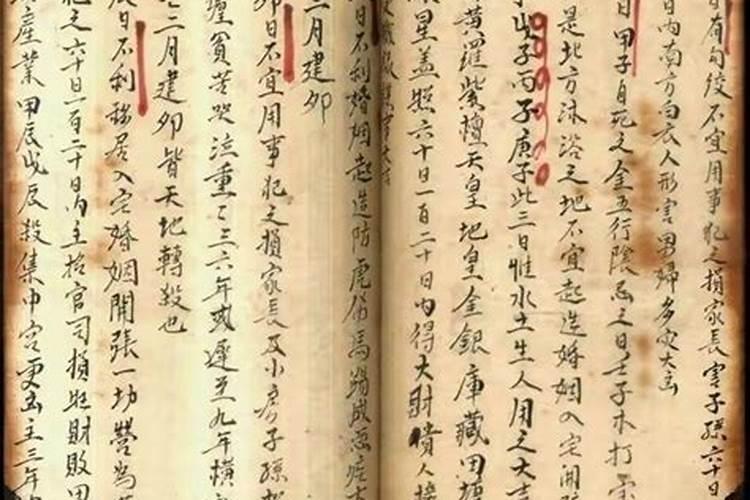 日有勾絞不宜用事犯之損家長害子孫六十日
日內南方白衣人刑害男婦多灾大凶
日甲子自死之金五行陰忌之日壬子木打
是北方沐浴之地不宜起造婚姻入宅開
戊子丙子庚子此三日惟水土生人用之大吉
黃羅紫檀天皇地皇金銀庫藏田塘
星盖照六十日一百二十日內得大財貴人接
日不利婚姻起造防虎傷馬踢成
二月建卯
卯日不宜用事犯之損家長及小房子孫
貧苦哭泣重重三六年或遲至九年橫
二月建卯皆天地轉殺也
日不利移居入宅婚姻開張一切營為
犯之六十日一百二十日內主招官司損照財敗田
產業甲辰戊辰殺集中宮更凶主三年